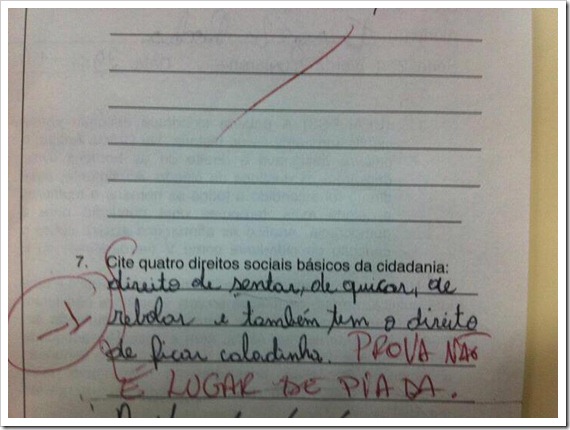 7. Cite quatro direitos sociais básicos da cidadania:
direito de sentar, de quicar, de
rebolar e também tem o direito
de ficar caladinha. PROVA NÃO
É LUGAR DE PIADA.
-1